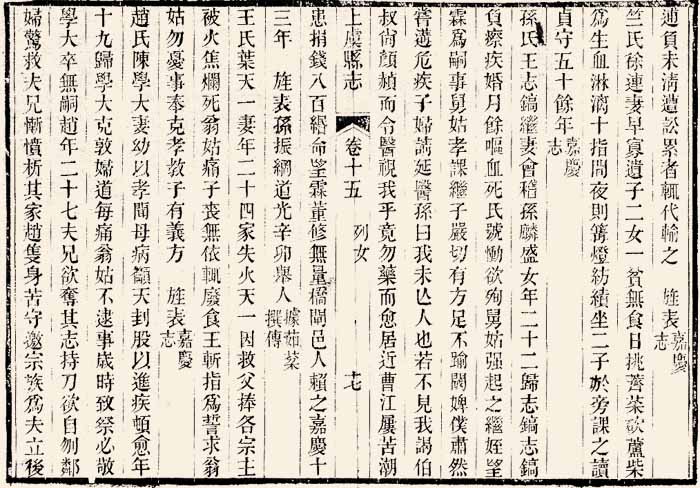 逋負未淸遭訟累者輒代輸之　旌表嘉慶志
竺氏徐連妻早寡遺子二女一貧無食日挑薺菜砍蘆柴
爲生血淋漓十指間夜則篝燈紡績坐二子於旁課之讀
貞守五十餘年嘉慶志
孫氏王志鎬繼妻會稽孫麟盛女年二十二歸志鎬志鎬
負瘵疾婚月餘嘔血死氏號慟欲殉舅姑强起之繼姪望
霖爲嗣事舅姑孝課繼子嚴切有方足不踰閾婢僕肅然
嘗遘危疾子婦請延醫孫曰我未亡人也若不見我謁伯
叔尙顏赬而令醫視我乎竟勿藥而愈居近曹江屢苦潮
上虞縣志　卷十五　列女
患捐錢八百緡命望霖董修無量橋閘邑人賴之嘉慶十
三年　旌表孫振綱道光辛卯舉人據茹棻撰傳
王氏葉天一妻年二十四家失火天一因救父捧各宗主
被火焦爛死翁姑痛子喪無依輒廢食王斷指爲誓求翁
姑勿憂事奉克孝教子有義方　旌表嘉慶志
趙氏陳學大妻幼以孝聞母病籲天刲股以進疾頓愈年
十九歸學大克敦婦道每痛翁姑不逮事歲時致祭必敬
學大卒無嗣趙年二十七夫兄欲奪其志持刀欲自刎鄰
婦驚救夫兄慚憤析其家趙隻身苦守邀宗族爲夫立後